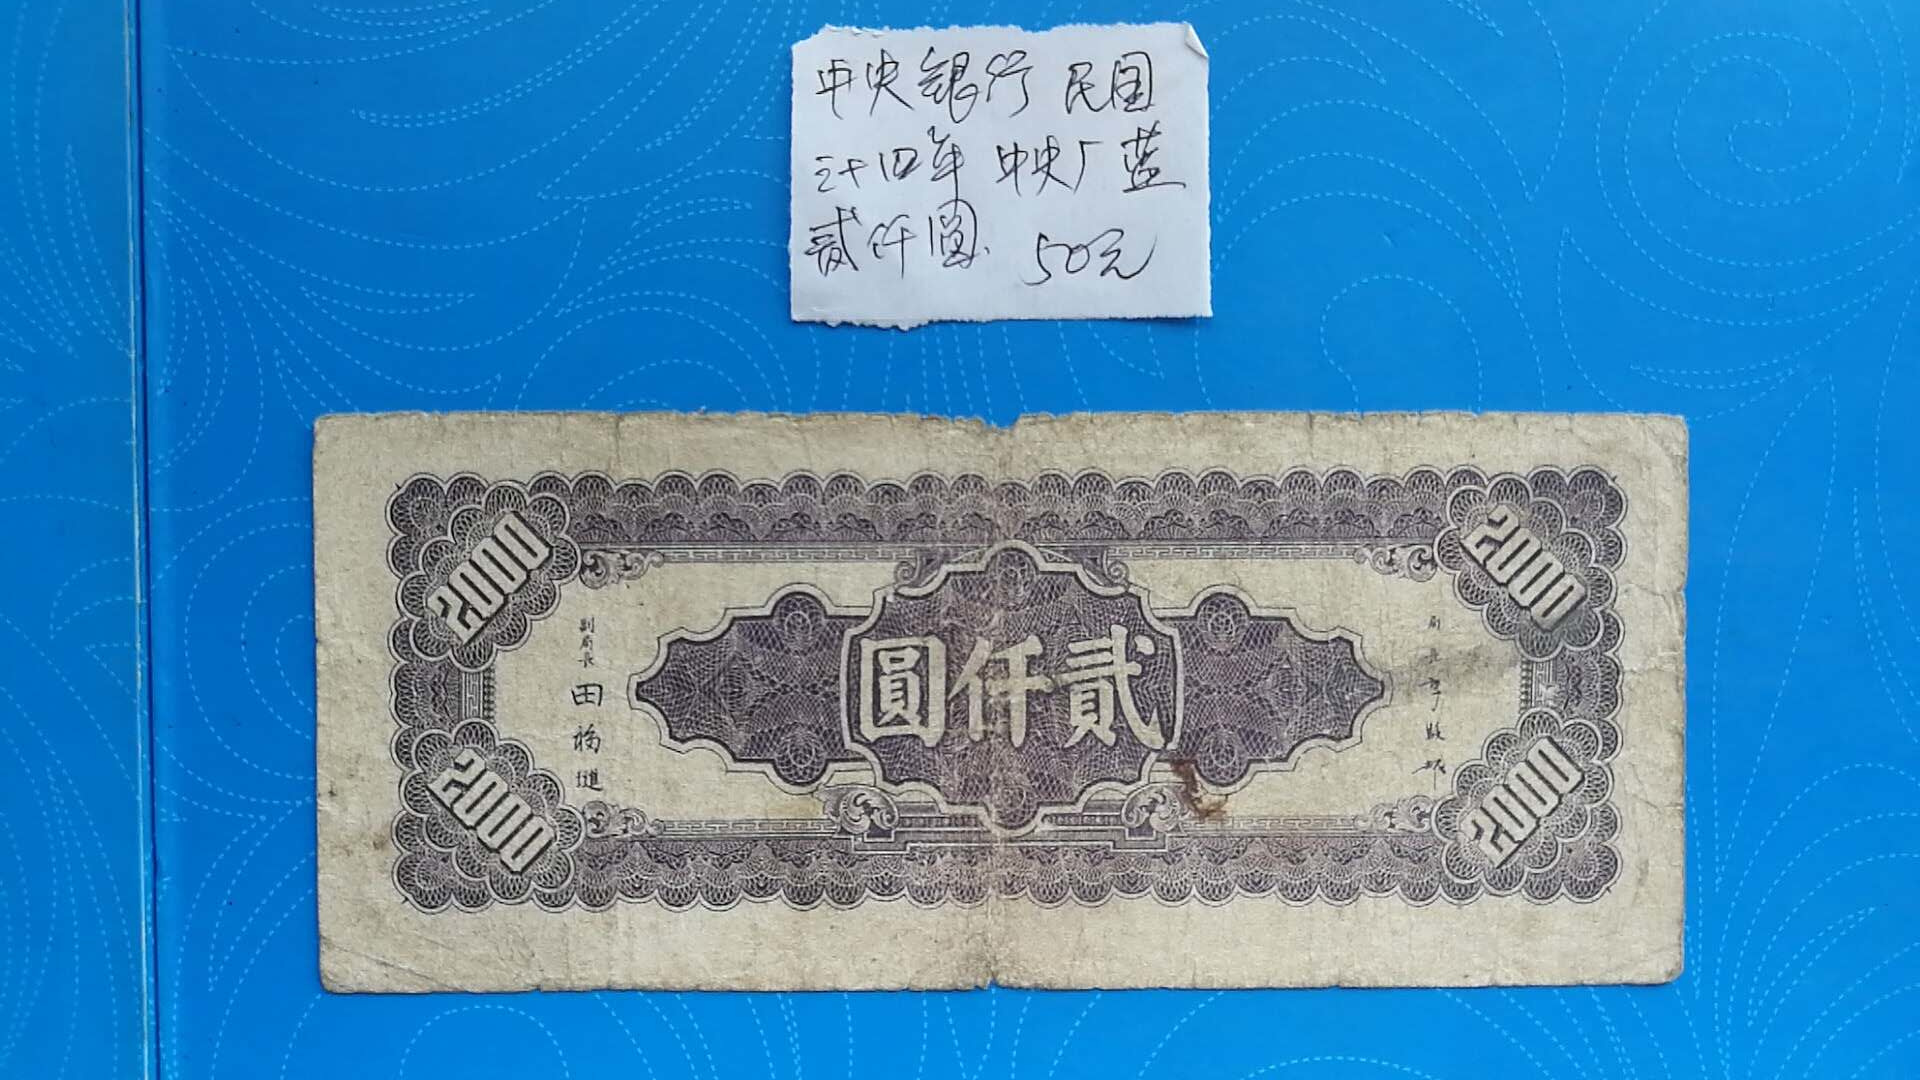 中央银行 民国
三十四年 中央厂 蓝
贰仟圆. 50元
2000
2000
副局長
田福進
圓仟貳
局長
2000
2000